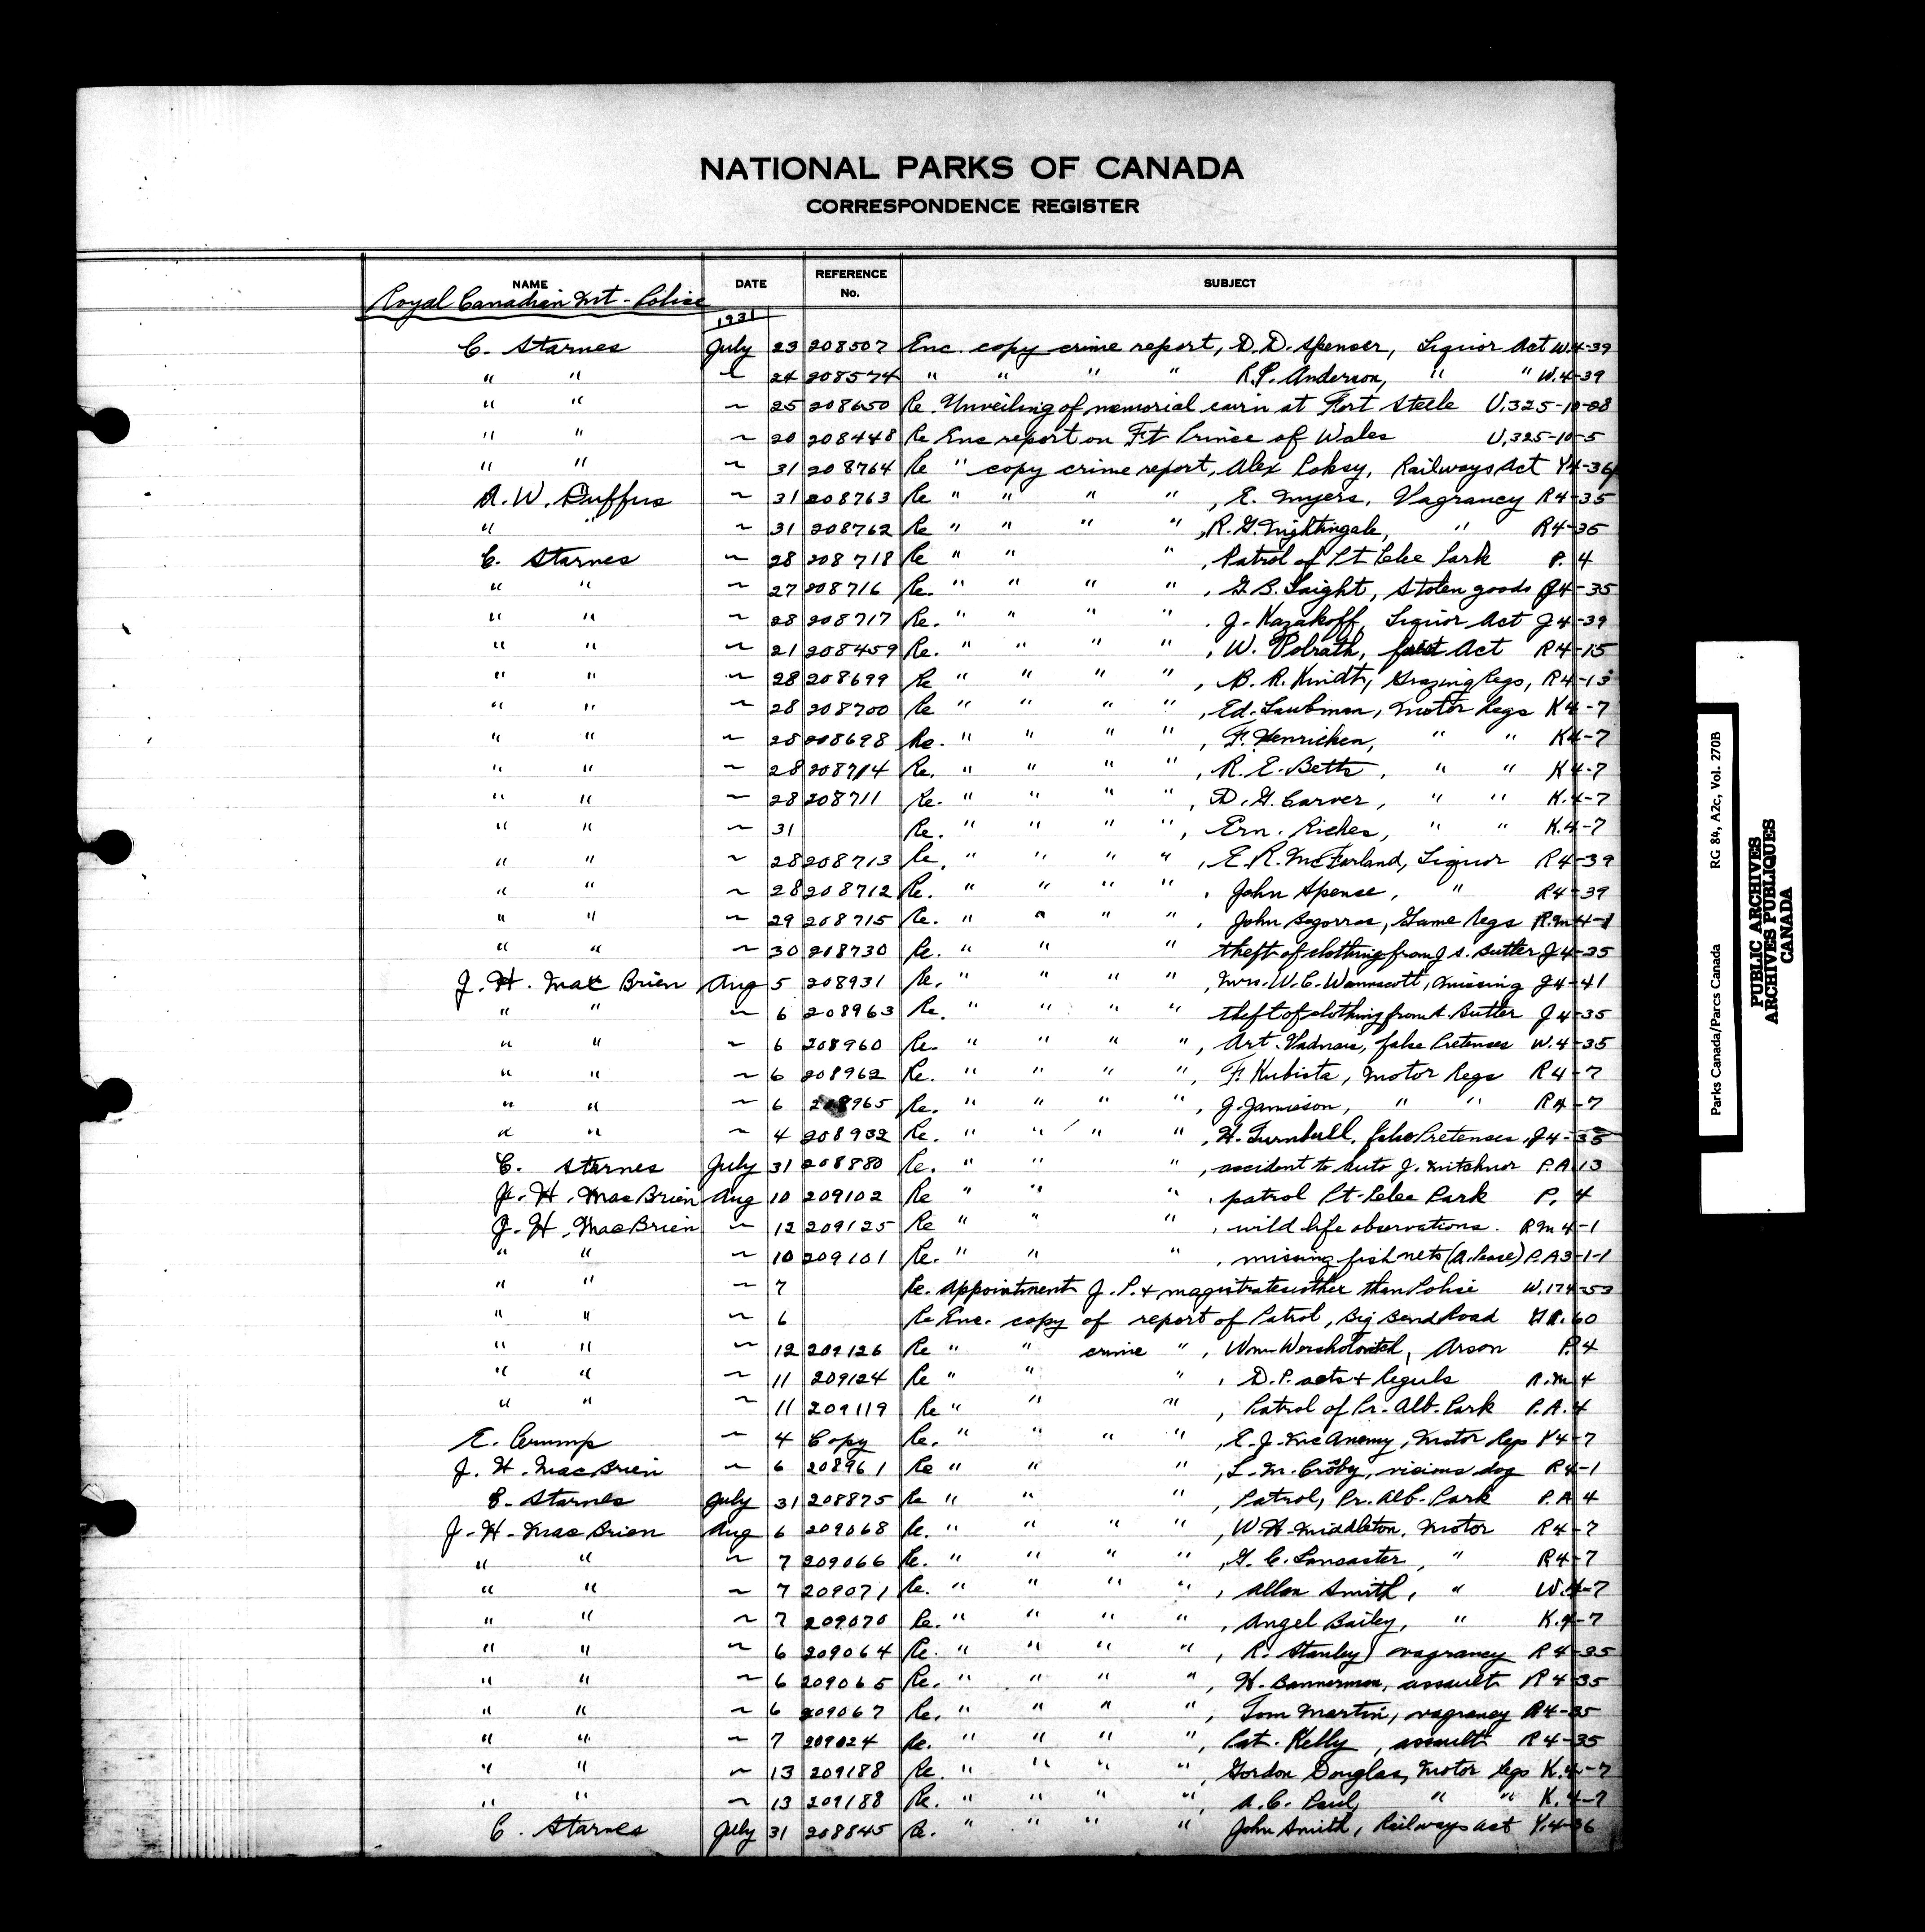 NATIONAL PARKS OF CANADA
CORRESPONDENCE REGISTER
NAME DATE REFERENCE No. SUBJECT
Royal Canadian Mt-Police
1931
C. Starnes July 23 208507 Enc. copy crime report, D.D. Spenser, Liquor Act W.4-39
" " ~ 24 208574 " " " " R.P. Anderson, " " W.4-39
" " ~ 25 208650 Re Unveiling of memorial cairn at Fort Steele U.325-10-28
" " ~ 20 208448 Re Enc report on Ft Prince of Wales U,325-10-5
" " ~ 31 208764 Re " copy crime report, Alex Poksy, Railways Act Y4-36
A. W. Duffus ~ 31 208763 Re " " " " , E. Myers, Vagrancy R4-35
" " ~ 31 208762 Re " " " " , R.G. Nightingale, " R4-35
C. Starnes ~ 28 208718 Re " " " , Patrol of Pt Pelee Park P. 4
" " ~ 27 208716 Re. " " " " , G.B. Laight, Stolen goods J4-35
" " ~ 28 208717 Re. " " " " . J. Kazakoff, Liquor Act J4-39
" " ~ 21 208459 Re. " " " " , W. Polrath, Act R4-15
" " ~ 28 208699 Re " " " " , B. R. Kindt, Grazing Regs, R4-13
" " ~ 28 208700 Re " " " " , Ed. Laubman, Motor Regs K4-7
" " ~ 28 208698 Re. " " " " , F. Henrichen, " " K4-7
" " ~ 28 208714 Re. " " " " , R. E. Betts, " " K4-7
" " ~ 28 208711 Re. " " " " , D. G. Carver, " " K.4-7
" " ~ 31 Re. " " " " , Ern. Riches, " " K.4-7
" " ~ 28 208713 Re. " " " " , E. R. McFarland, Liquor R4-39
" " ~ 28 208712 Re. " " " " , John Spense, " R4-39
" " ~ 29 208715 Re. " " " " , John Segorras, Game Regs R.M4-1
" " ~ 30 208730 Re. " " " theft of clothing from J. S. Butler J4-35
J. H. MacBrien Aug 5 208931 Re. " " " " , Mrs. W. C. Wannacott, missing J4-41
" " ~ 6 208963 Re. " " " " theft of clothing from A. Butler J4-35
" " ~ 6 208960 Re. " " " " , Art. Vadnais, false Pretenses W.4-35
" " ~ 6 208962 Re. " " " " , F. Kubista, Motor Regs R4-7
" " ~ 6 208965 Re. " " " " , J. Jamieson, " " R4-7
" " ~ 4 208932 Re. " " " " , H. Turnbull, false Pretenses J4-35
C. Starnes July 31 208880 Re. " " " , accident to auto J. Mitchner P.A.13
J. H. MacBrien Aug 10 209102 Re " " " , patrol Pt-Pelee Park P. 4
J. H. MacBrien ~ 12 209125 Re " " " , wild life observations. R M 4-1
" " ~ 10 209101 Re. " " " , missing fish nets (A. Pease) P.A3-1-1
" " ~ 7 Re. Appointment J. P. + magistrates other than Police W.174-53
" " ~ 6 Re Enc. copy of report of Patrol, Big Bend Road G R.60
" " ~ 12 209126 Re " " crime " , Wm Arson P.4
" " ~ 11 209124 Re " " " , D. P. acts + Reguls R.M 4
" " ~ 11 209119 Re " " " , Patrol of Pr. Alb. Park P.A.4
E. Crump ~ 4 Copy Re. " " " " , E. J. McAnemy, Motor Regs Y4-7
J. H. MacBrien ~ 6 208961 Re " " " , L. M. Crosby, vicious dog R4-1
C. Starnes July 31 208875 Re " " " , Patrol, Pr. Alb. Park P.A 4
J. H. MacBrien Aug 6 209068 Re. " " " " , W. H. Middleton, Motor R4-7
" " ~ 7 209066 Re. " " " " , G. C. Lancaster, " R4-7
" " ~ 7 209071 Re. " " " " , Allan Smith, " W.4-7
" " ~ 7 209070 Re. " " " " , Angel Bailey, " K.4-7
" " ~ 6 209064 Re. " " " " , R. Stanley, vagrancy R4-35
" " ~ 6 209065 Re. " " " " , H. Bannerman, assault R4-35
" " ~ 6 209067 Re. " " " " , Tom Martin, vagrancy R4-35
" " ~ 7 209024 Re. " " " " , Pat. Kelly, assault R4-35
" " ~ 13 209188 Re. " " " " , Gordon Douglas, Motor Regs K.4-7
" " ~ 13 209188 Re. " " " " , A. C. Paul, " " K.4-7
C. Starnes July 31 208845 Re. " " " " John Smith, Railways Act Y.4-36
Parks Canada/Parcs Canada RG 84, A2c, Vol. 270B
PUBLIC ARCHIVES
ARCHIVES PUBLIQUES
CANADA